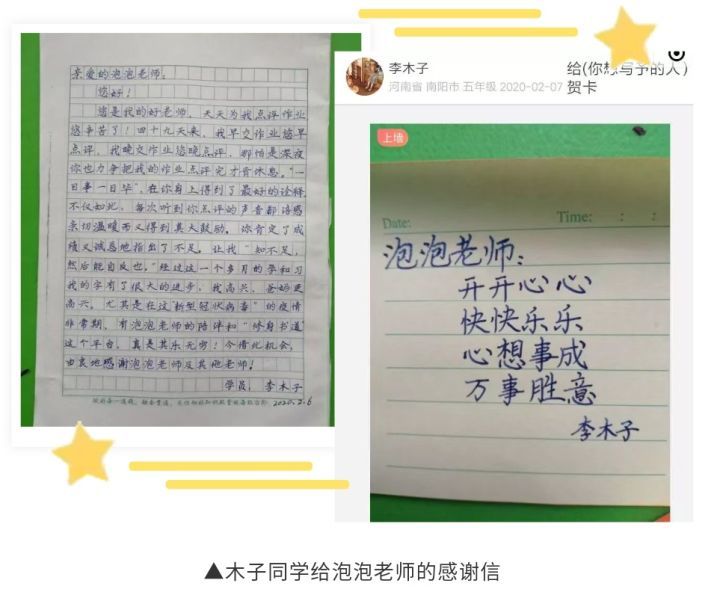 亲爱的泡泡老师:
您好!
您是我的好老师,天天为我点评作业
您辛苦了!四十九天来,我早交作业您早
点评,我晚交作业您晚点评,那怕是深夜
你也力争把我的作业点评完才肯休息。"一
日事一日毕",在你身上得到了最好的诠释
不仅如此,每次听到你点评的声音都倍感
亲切温暖而又得到莫大鼓励。你肯定了成
绩又诚恳地指出了不足。让我"知不足,
然后能自反也。"经过这一个多月的学和习
我的字有了很大的进步,我高兴,爸妈更
高兴。尤其是在这"新型冠状病毒"的疫情
非常期,有泡泡老师的陪伴和"修身书道"
这个平台,真是其乐无穷!今借此机会,
由衷地感谢泡泡老师及其他老师!
学员:李木子
2020.2.6
李木子
河南省 南阳市 五年级 2020-02-07
给(你想写予的人)
贺卡
上墙
Date:
Time: : :
泡泡老师:
开开心心
快快乐乐
心想事成
万事胜意
李木子
▲木子同学给泡泡老师的感谢信